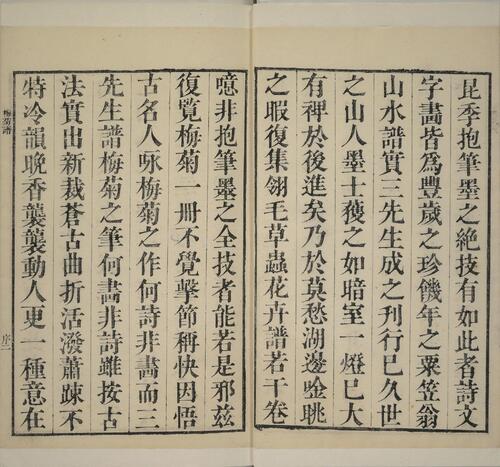 昆季抱筆墨之絕技有如此者詩文
字畫皆為豐歲之珍饑年之粟笠翁
山水譜實三先生成之刊行巳久世
之山人墨士獲之如暗室一燈巳大
有裨於後進矣乃於莫愁湖邊唫眺
之暇復集翎毛草蟲花卉譜若干卷
噫非抱筆墨之全技者能若是邪茲
復覧梅菊一冊不覺擊節稱快因悟
古名人咏梅菊之作何詩非畫而三
先生譜梅菊之筆何畫非詩雖按古
法實出新裁蒼古曲折活潑蕭踈不
特冷韻晚香襲襲動人更一種意在
梅菊譜
序二